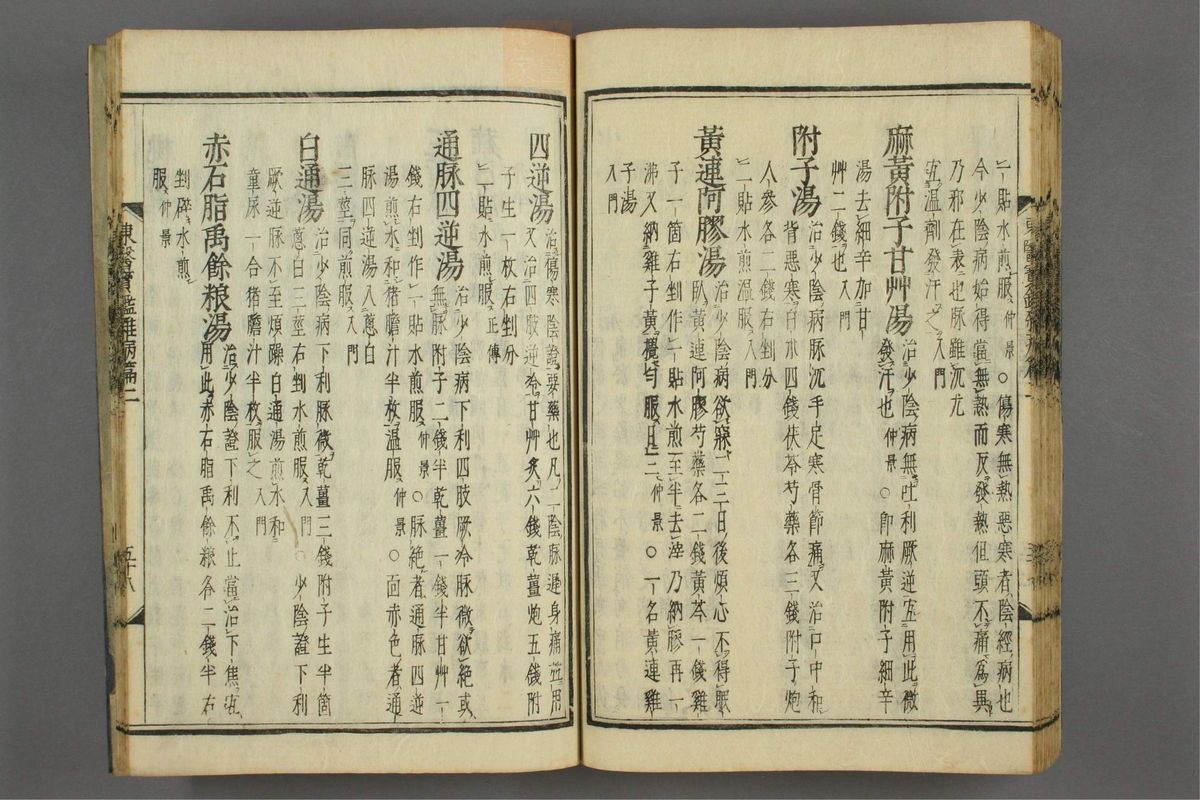 一貼水煎服仲景○傷寒無熱惡寒者陰經病也
今少陰病始得當無熱而反發熱但頭不痛為異
乃邪在表也脉雖沉尤
宜温劑發汗之入門
麻黃附子甘艸湯治少陰病無吐利厥逆宜用此微
發汗也仲景○即麻黃附子細辛
湯去細辛加甘
艸二錢也入門
附子湯治少陰病脉沉手足寒骨節痛又治口中和
背惡寒白朮四錢茯苓芍藥各三錢附子炮
人參各二錢右剉分
二貼水煎温服入門
黃連阿膠湯治少陰病欲寐二三日後煩心不得眠
臥黃連阿膠芍藥各二錢黃芩一錢雞
子一箇右剉作一貼水煎至半去滓乃納膠再一
沸又納雞子黃攪勻服日三仲景○一名黃連雞
子湯
入門
四逆湯治傷寒陰證要藥也凡三陰脉遲身痛並用
又治四肢逆冷甘艸炙六錢乾薑炮五錢附
子生一枚右剉分
二貼水煎服正傳
通脉四逆湯治少陰病下利四肢厥冷脉微欲絶或
無脉附子二錢半乾薑一錢半甘艸一
錢右剉作一貼水煎服仲景○脉絶者通脉四逆
湯煎水和猪膽汁半枚温服仲景○面赤色者通
脉四逆湯入葱白
三莖同煎服入門
白通湯治少陰病下利脉微乾薑三錢附子生半箇
葱白三莖右剉水煎服入門○少陰證下利
厥逆脉不至煩躁白通湯煎水和
童尿一合猪膽汁半枚服之入門
赤石脂禹餘粮湯治少陰證下利不止當治下焦宜
用此赤石脂禹餘粮各二錢半右
剉碎水煎
服仲景
東醫寶鑑雜病篇二
五十八